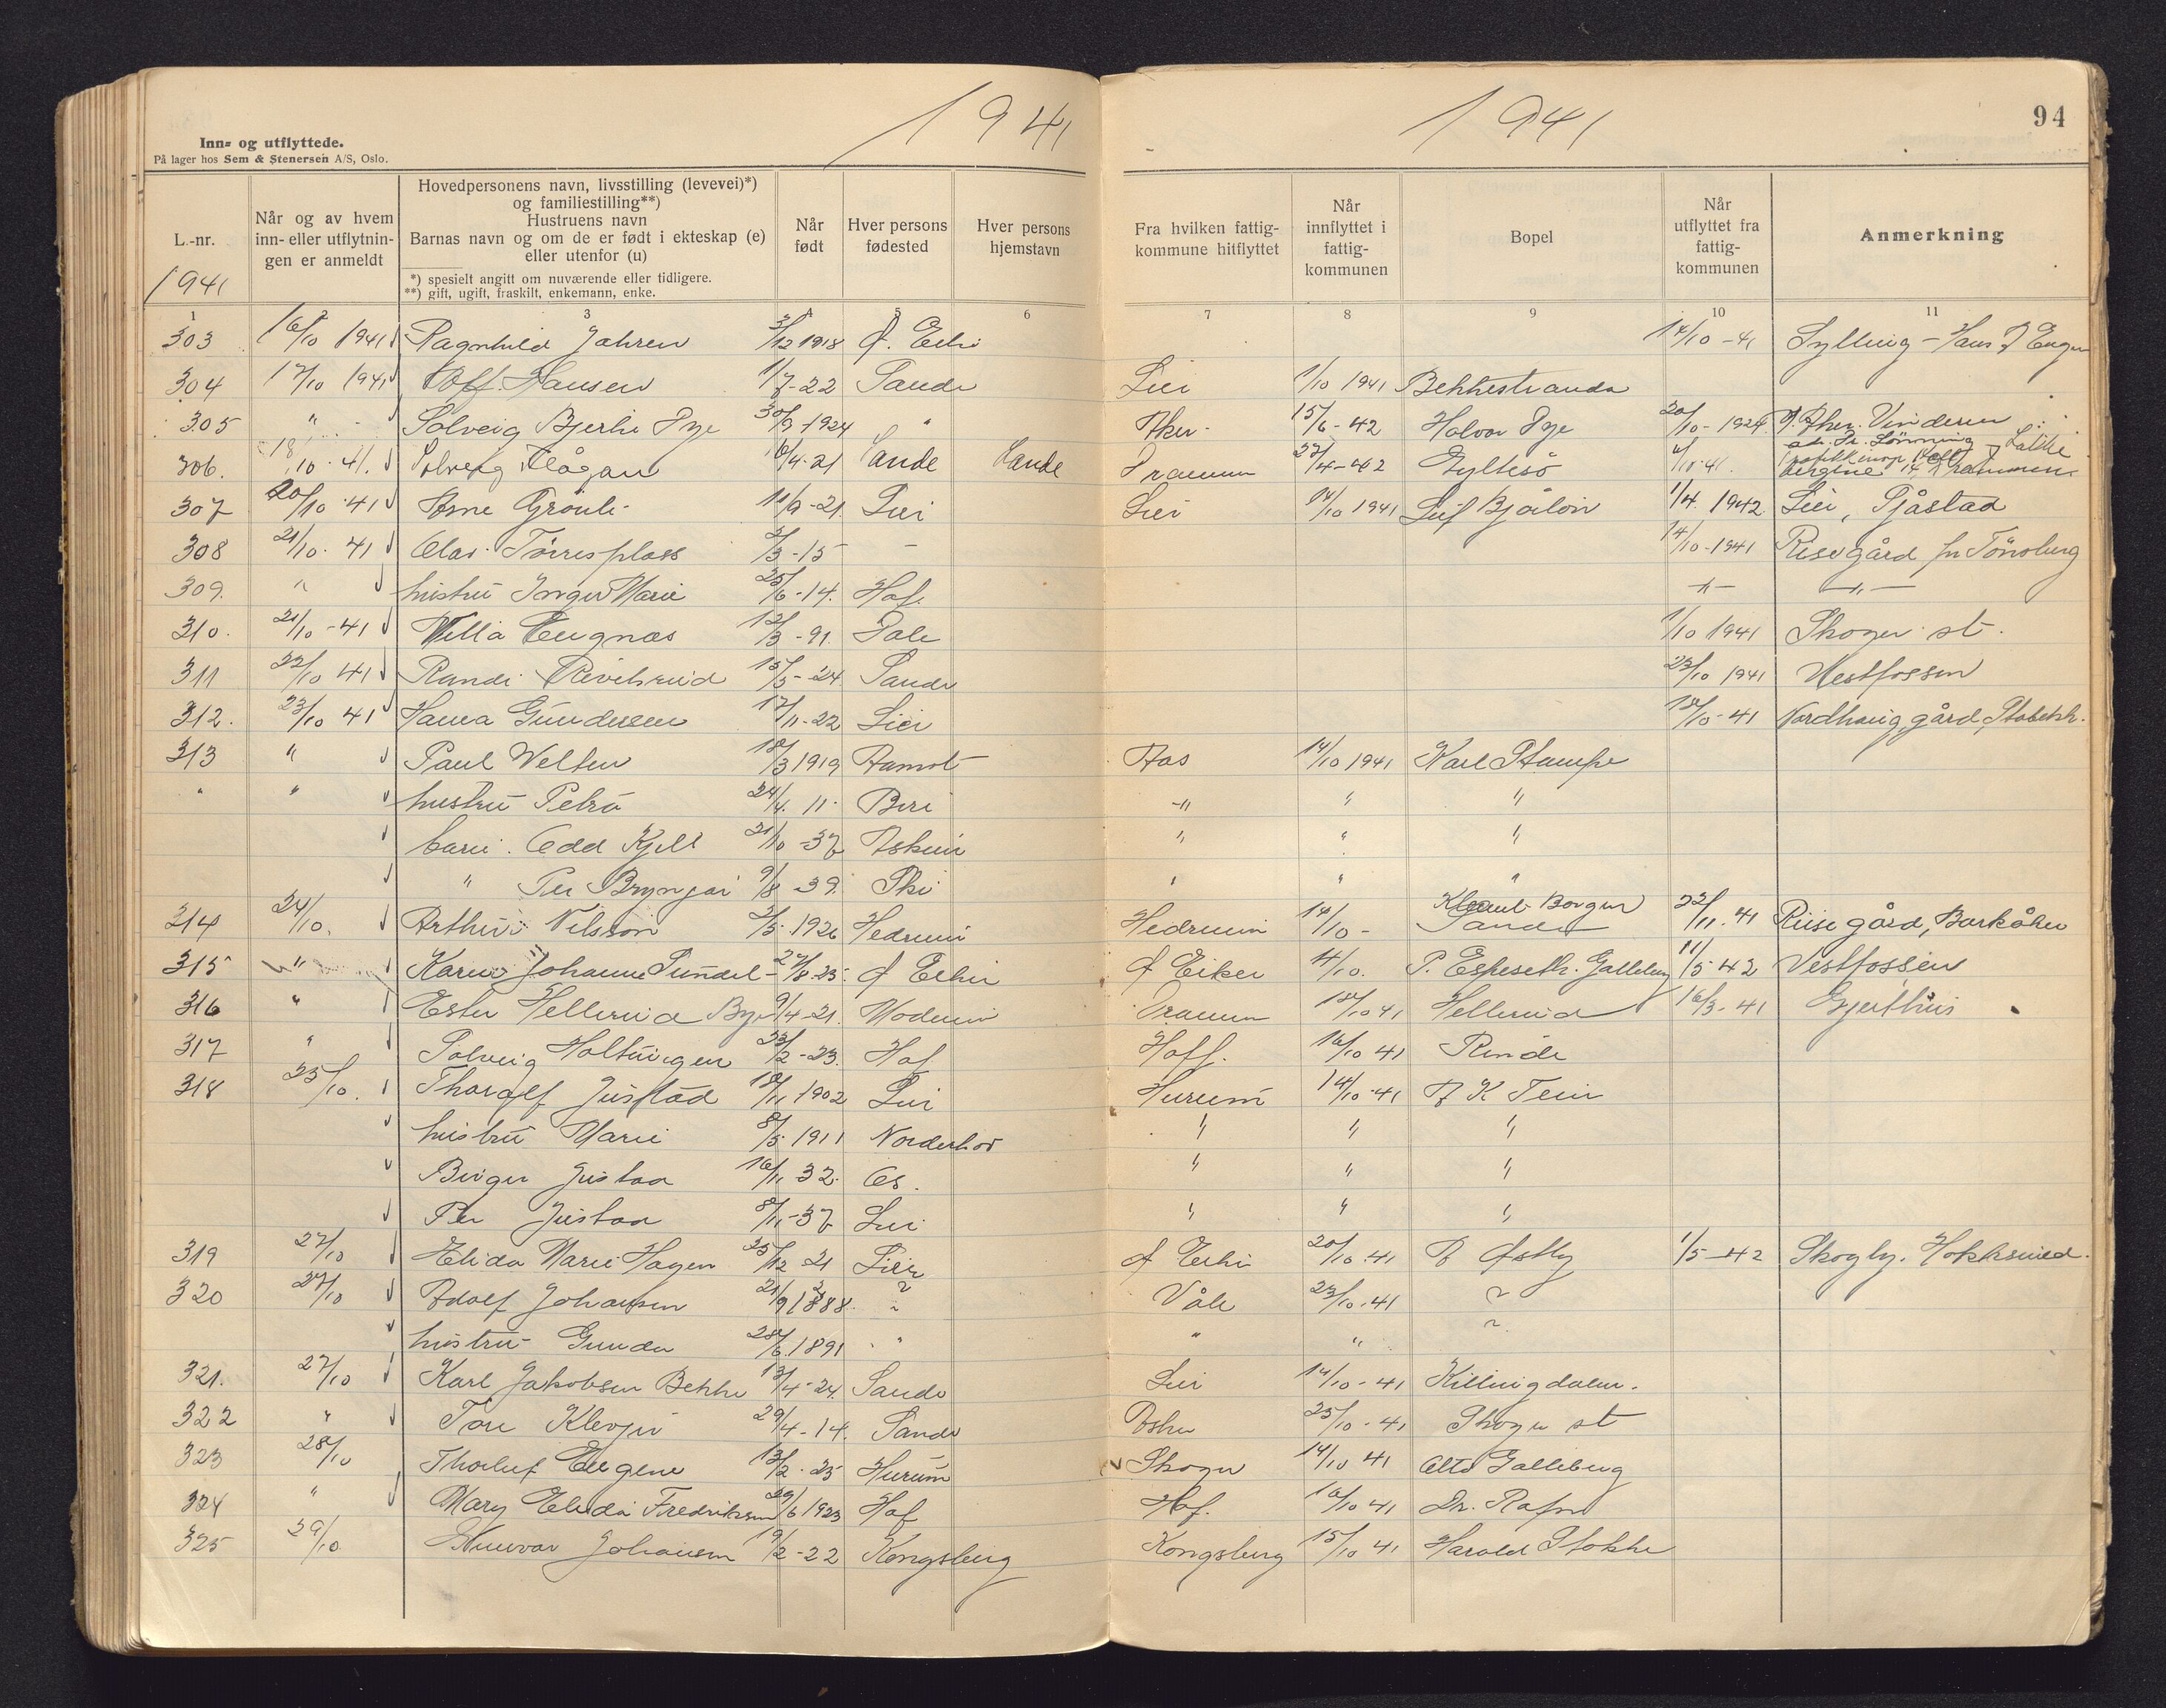 1941
1941
94
Inn- og utflyttede.
På lager hos Sem & Stenersen A/S, Oslo.
L.-nr.
1941
Når og av hvem inn- eller utflytningen er anmeldt
Hovedpersonens navn, livsstilling (levevei)*) og familiestilling**)
Hustruens navn
Barnas navn og om de er født i ekteskap (e) eller utenfor (u)
*) spesielt angitt om nuværende eller tidligere.
**) gift, ugift, fraskilt, enkemann, enke.
Når født
Hver persons fødested
Hver persons hjemstavn
Fra hvilken fattigkommune hitflyttet
Når innflyttet i fattigkommunen
Bopel
Når utflyttet fra fattigkommunen
Anmerkning
1 3 5 6 7 8 9 10 11
303 16/10 1941 Ragnhild Jahren 3/12 1918 Ø. Eiker 14/10 -41 Sylling - Hans
304 17/10 1941 Hansen 1/7-22 Sande Lier 1/10 1941 Bekkestranda
305 " Solveig Bjerke Rye 30/9 1924 " Aker 15/6-42 Halvor Rye 20/10-1924 Aker. Vinderen
306. 18/10.41. Solveig 16/4-21 Sande Sande Drammen 27/4-42 Gyltesø Drammen
307 20/10.41 Arne Grönli 11/9-21. Lier Lier 14/10 1941 Leif 1/4. 1942 Lier, Tjåstad
308 21/10.41 Olav Torresplass 2/3-15 - 14/10-1941 Rise gård pr Tönsberg
309. " hustru Inger Marie 25/6-14. Hof. -"- -"-
310. 21/10-41 Villa Engnæs 12/3-91. 1/10 1941 Skoger st.
311 22/10 41 Randi 15/5-24. Sande 23/10 1941 Vestfossen
312. 23/10 41 Hanna Gundersen 17/11-22 Lier 18/10-41 Nordhaug gård, Stabekk.
313 " Paul Welten 18/3 1919 Aamot Aas 14/10 1941 Karl Stampe
" " hustru Petra 24/4. 11. Biri -"- " "
barn. Odd Kjell 21/10-37 Askim " " "
" Per Bryngar 9/8-39. Ski " " "
314 24/10. Arthur Nilsson 2/5.1926 Hedrum Hedrum 14/10- Klemet Borgen Sande 22/11.41 Riise gård, Barkåker
315 " Karen Johanne Sundet 27/8-25. Ø Eiker Ø Eiker 4/10. P. Espeseth. Galleberg 11/5 42 Vestfossen
316 " Ester Hellerud 9/4-21. Modum Drammen 18/10 41 Hellerud 16/3-41 Gjerthus
317 " Solveig Holtungen 23/2-23. Hof Hoff. 16/10 41
318 25/10. Tharalf Justad 18/11 1902 Lier Hurum 14/10-41
hustru Marie 8/5 1911 Norderhov " " "
Birger Justad 16/11 32. Os. " " "
Per Justad 8/11-37 Lier " " "
319 27/10 Elida Marie Hagen 25/12 21 Lier Ø Eiker 20/10.41 Østby 1/5-42 Skogly. Hokksund.
320 27/10 Adolf Johansen 21/9 1888. " Våle 23/10-41 "
hustru Gunda 28/6 1891 " " " "
321. 27/10 Karl Jakobsen Bekke 13/4-24. Sande Lier 14/10-41 Killingdalen.
322 " Tore Klevjer 29/4-14. Sande Asker 25/10-41 Skoger st
323 28/10 Thorleif Eugene 13/2.25 Hurum Skoger 14/10 41 Otto Galleberg
324 " Mary Elida Fredriksen 29/6 1923 Hof Hof. 16/10 41 Dr. Rafn
325 29/10 Gunvor Johansen 19/2-22 Kongsberg Kongsberg 15/10 41 Harald Stokke